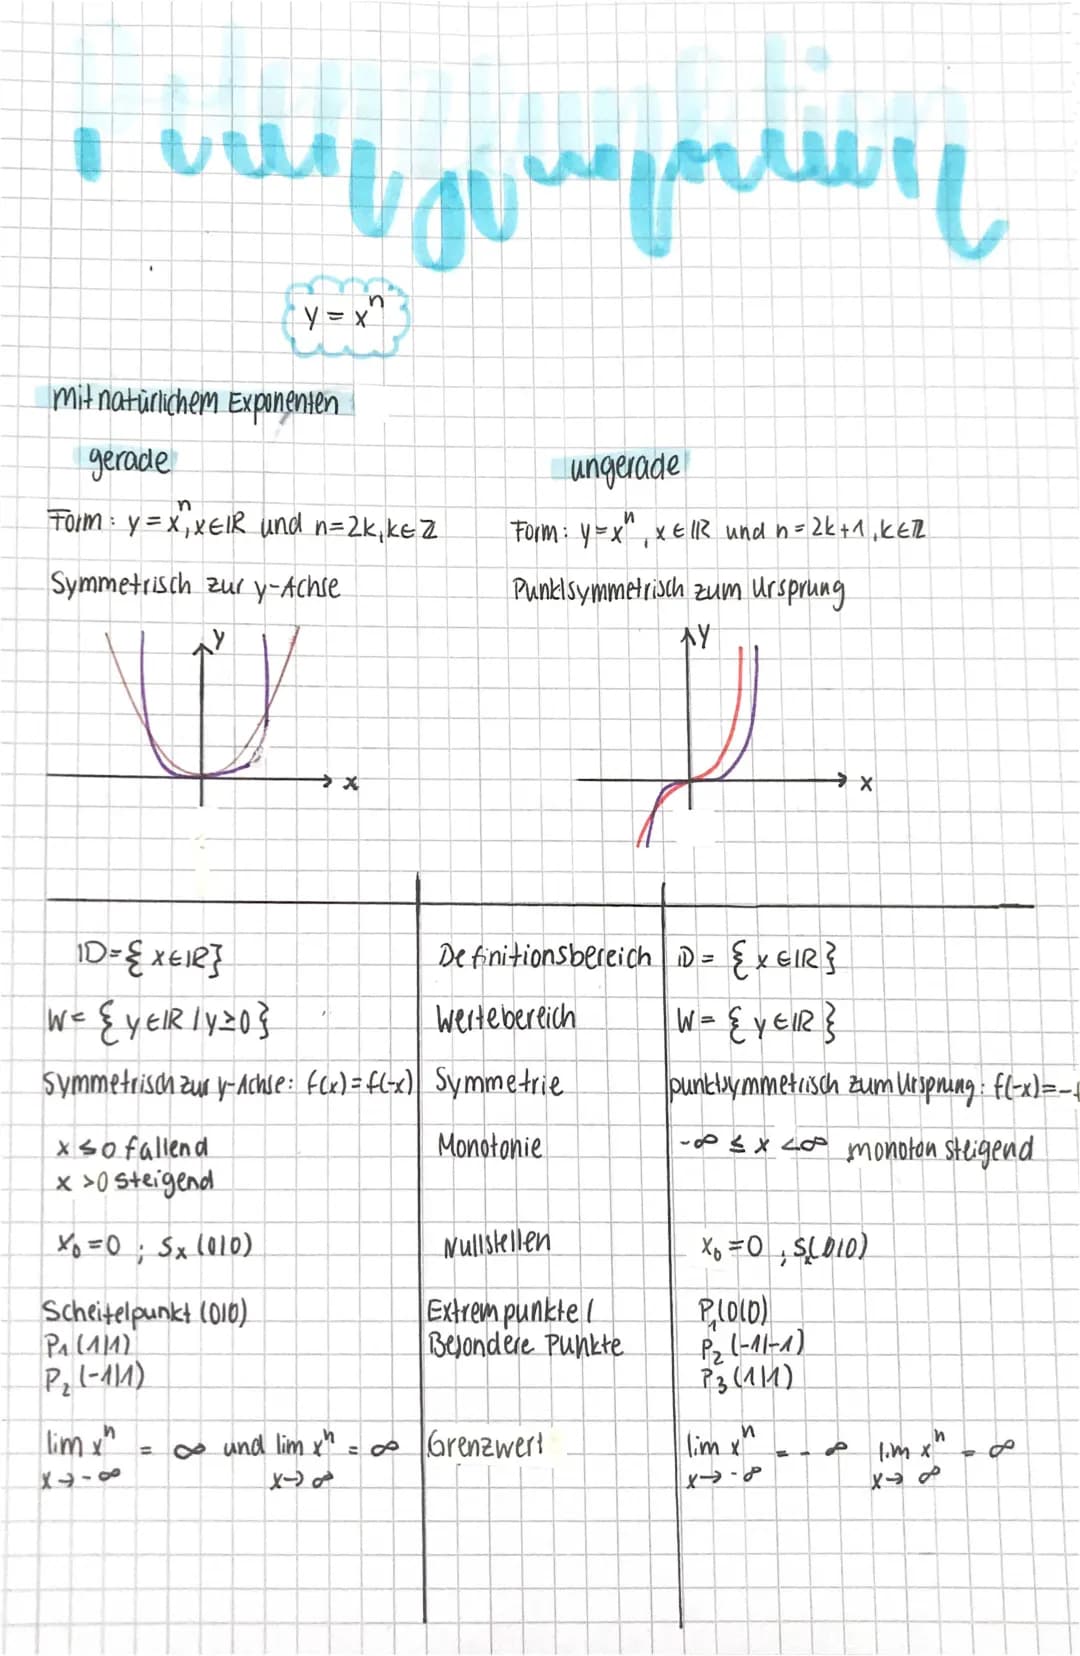 Potenzfunktion
y = xⁿ
mit natürlichem Exponenten
gerade
ungerade
Form: y = xⁿ, x∈ℝ und n=2k, k∈ℤ
Form: y=xⁿ, x∈ℝ und n=2k+1, k∈ℤ
Symmetrisch zur y-Achse
Punktsymmetrisch zum Ursprung
y
x
y
x
𝔻={x∈ℝ}
Definitionsbereich
𝔻 = {x∈ℝ}
W= {y∈ℝ / y≥0}
Wertebereich
W= {y∈ℝ}
Symmetrisch zur y-Achse: f(x)=f(-x)
Symmetrie
punktsymmetrisch zum Ursprung: f(-x)=-f
x ≤ 0 fallend
x >0 steigend
Monotonie
-∞ ≤ x <∞ monoton steigend
x₀=0 ; Sx (0|0)
Nullstellen
x₀=0 , Sx(0|0)
Scheitelpunkt (0|0)
P₁ (1|1)
P₂ (-1|1)
Extrempunkte /
Besondere Punkte
P₁(0|0)
P₂ (-1|-1)
P₃ (1|1)
lim xⁿ = ∞ und lim xⁿ = ∞
x→-∞ x→∞
Grenzwert
lim xⁿ = -∞ lim xⁿ = ∞
x→-∞ x→ ∞